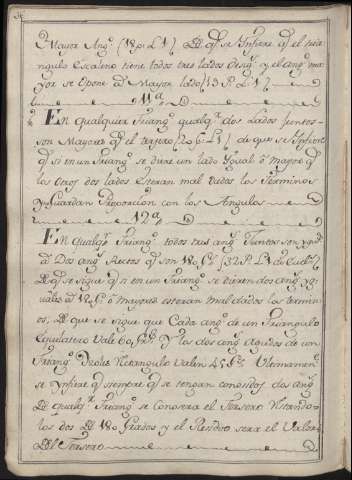 Mayor Ang.º (18 p. L 1.) De q.e se Ynfiere q.e el trian
gulo Escaleno tiene todos tres lados desig.s y el ang.º ma
yor se opone al Mayor lado (19 P. L 1.)
11ª
En qualquier Triang.º qualq.a dos Lados Juntos
son Mayores q.e el tercero (20 p. L 1.) de que se Ynfiere
q.e si en un Triang.º se diere un lado Ygual ô mayor q.e
los otros dos lados Estaran mal dados los Terminos
y Guardan Proporcion con los Angulos
12ª
En Qualq.r Triang.º todos tres ang.s Juntos son yguâ.
â Dos ang.s Rectos q.e son 180 g.s (32 P. L 1º de Eucli.)
De q.e se sigue q.e si en un Triang.º se dieren dos ang.s yg
uales â 180 g.s ô mayores estaran mal dados los termin
os, De que se sigue que Cada ang.º de un Triangulo
Equilatero Vale 60 g.s y los dos ang.s Agudos de un
Triang.º Rectangulo Valen 45 g.s Ultimamen.te
se ynfiere q.e siempre q.e se tengan conosidos dos ang.s
De qualq.r Triang.º se Conosera el Tersero Restando
los dos De 180 grados y el Residuo sera el Valor
Del Tersero